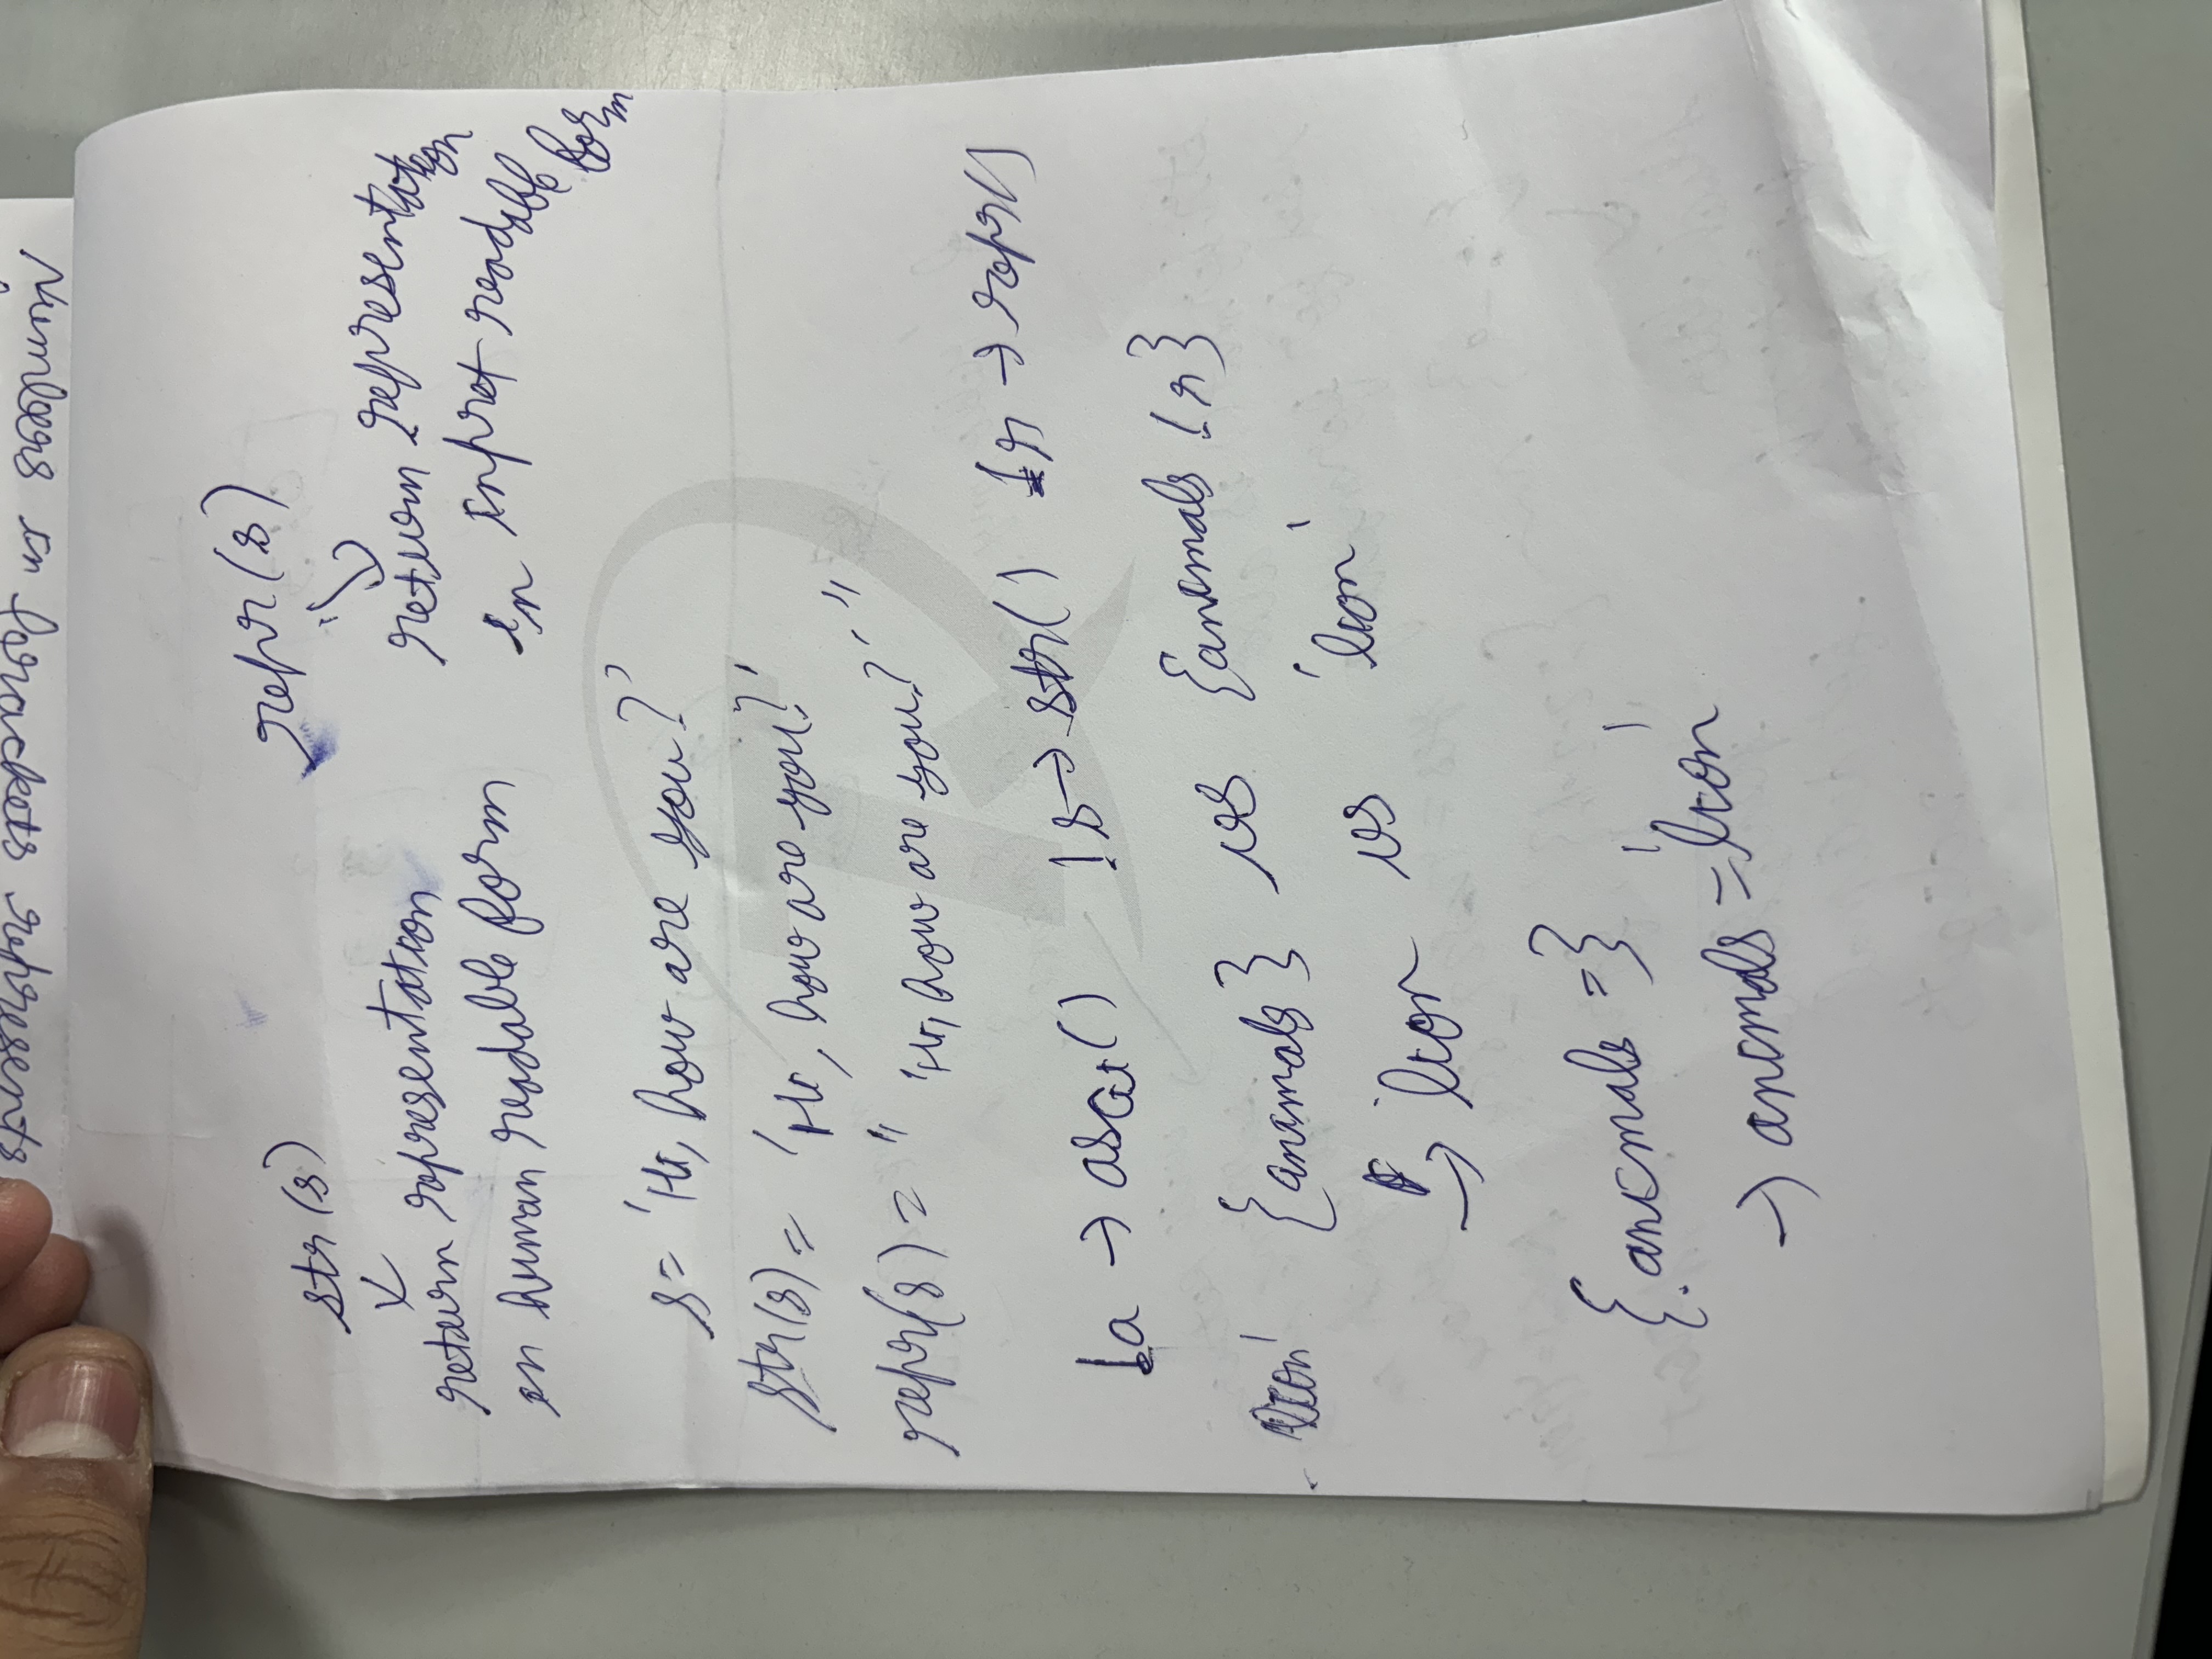 Numbers in brackets represents
str(s)
repr(s)
return representation
in human readable form
return representation
in inpret readable form
s= 'Hi, how are you?'
str(s) = 'Hi, how are you?'
repr(s) = " 'Hi, how are you?' "
!a → ascii() !s → str() !r → repr()
lion' {animals} vs {animals !r}
→ lion vs 'lion'
{animals =}
→ animals = 'lion'